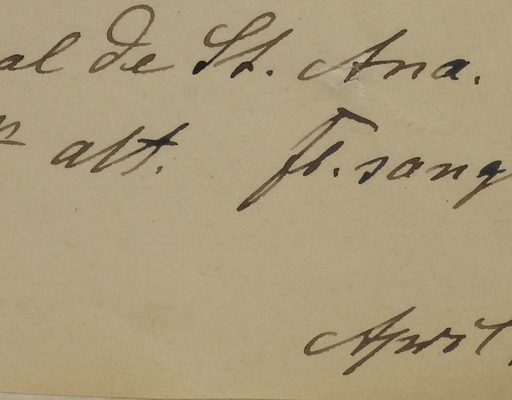 al de St. Ana.
alt. fl. sang
April